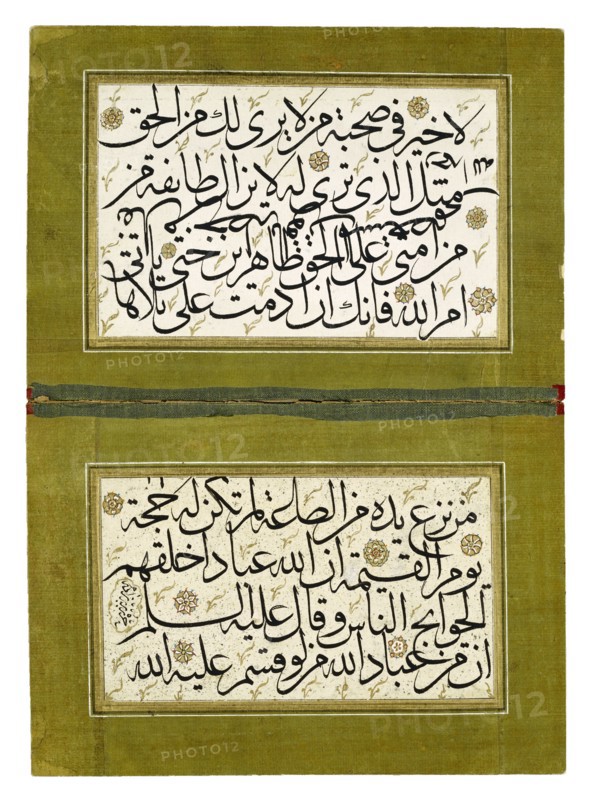 لا خير في صحبة من لا يرى لك من الحق
مثل الذي ترى له لا تزال طائفة من
من امتي على الحق ظاهرين حتى ياتي
امر الله فانك ان دمت على
من نزع يده من الطاعة لم تكن له حجة
يوم القيمة ان الله عبادا خلقهم
لحوايج الناس وقال عليه السلم
ان من عباد الله من لو قسم عليه الله
PHOTO12